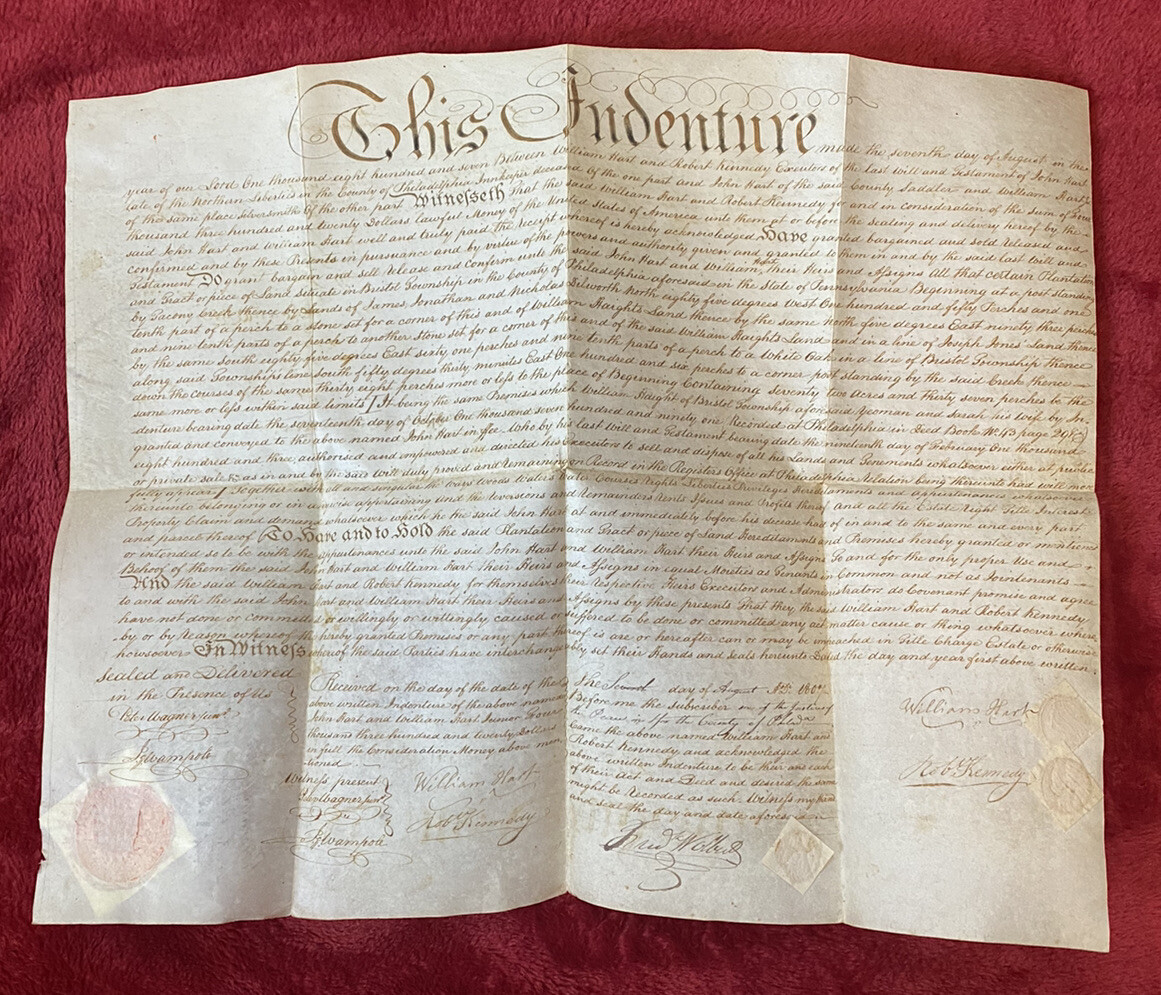 This Indenture made the seventh day of August in the
year of our Lord One thousand eight hundred and seven Between William Hart and Robert Kennedy Executors of the last will and Testament of John Hart
late of the Northern Liberties in the County of Philadelphia Innkeeper deceased of the one part and John Hart of the said County Sadler and William Hart
of the same place Silversmith of the other part Witnesseth that the said William Hart and Robert Kennedy for and in consideration of the sum of
thousand three hundred and twenty Dollars lawful Money of the United States of America unto them at or before the sealing and delivery hereof by the
said John Hart and William Hart well and truly paid the receipt whereof is hereby acknowledged Have granted bargained and sold released and
confirmed and by these Presents in pursuance and by virtue of the powers and authority given and granted to them in and by the said last will and
Testament Do grant bargain and sell Release and Confirm unto the said John Hart and William Hart, their Heirs and Assigns All that certain Plantation
and Tract or piece of Land situate in Bristol Township in the County of Philadelphia aforesaid in the State of Pennsylvania Beginning at a post standing
by Tacony Creek thence by Lands of James Jonathan and Nicholas Dilworth North eighty five degrees West One hundred and fifty Perches and one
tenth part of a perch to a stone set for a corner of this and of William Haight's Land thence by the same North five degrees East ninety three perches
and nine tenth parts of a perch to another Stone set for a corner of this and of the said William Haights Land and in a line of Joseph Jones' Land thence
by the same South eighty five degrees East sixty one perches and nine tenth parts of a perch to a White Oak in a line of Bristol Township thence
along said Townships line South fifty degrees thirty minutes East One hundred and six perches to a corner post standing by the said Creek thence
down the courses of the same thirty eight perches more or less to the place of Beginning Containing seventy two Acres and thirty seven perches be the
same more or less within said limits It being the same Premises which William Haight of Bristol Township aforesaid Yeoman and Sarah his wife by In-
denture bearing date the seventeenth day of October One thousand seven hundred and ninety one Recorded at Philadelphia in Deed Book No. 43 page
granted and conveyed to the above named John Hart in fee Who by his last Will and Testament bearing date the nineteenth day of February One thousand
eight hundred and three authorised and empowered and directed his Executors to sell and dispose of all his Lands and Tenements whatsoever either at publick
or private sale as in and by the said will duly proved and remaining on Record in the Registers Office at Philadelphia Relation being thereunto had will more
fully appear Together with all and singular the ways woods Waters Water Courses Rights Liberties Privileges Hereditaments and appurtenances whatsoever
thereunto belonging or in any wise appertaining and the reversions and Remainders Rents Issues and Profits thereof and all the Estate Right Title Interest
Property Claim and demand whatsoever which he the said John Hart at and immediately before his decease had of in and to the same and every part
and parcel thereof To Have and to Hold the said Plantation and Tract or piece of Land Hereditaments and Premises hereby granted or mentioned
or intended so to be with the appurtenances unto the said John Hart and William Hart their Heirs and Assigns To and for the only proper Use and
Behoof of them the said John Hart and William Hart their Heirs and Assigns in equal Moieties as Tenants in Common and not as Jointenants
And the said William Hart and Robert Kennedy for themselves their respective Heirs Executors and Administrators do Covenant promise and agree
to and with the said John Hart and William Hart their Heirs and Assigns by these presents That they the said William Hart and Robert Kennedy
have not done or committed or willingly or wittingly caused or suffered to be done or committed any act matter cause or thing whatsoever where-
by or by reason whereof the hereby granted Premises or any part thereof is are or hereafter can or may be impeached in Title Charge Estate or otherwise
howsoever In Witness whereof the said Parties have interchangeably set their Hands and Seals hereunto Dated the day and year first above written
Sealed and Delivered
in the Presence of Us
Peter Wagner junr
Swampole
Received on the day of the date of the
above written Indenture of the above named
John Hart and William Hart Junior
thousand three hundred and twenty Dollars
in full the Consideration Money above men-
tioned
Witness present
Peter Wagner junr
Swampole
William Hart
Robt Kennedy
The Seventh day of August A.D. 1807
Before me the Subscriber one of the Justices of
the Peace in & for the County of Philada
Came the above named William Hart and
Robert Kennedy, and acknowledged the
above written Indenture to be their and each
of their Act and Deed and desired the same
might be Recorded as such. Witness my hand
and seal the day and date aforesaid
Fred Wolbert
William Hart
Robt Kennedy